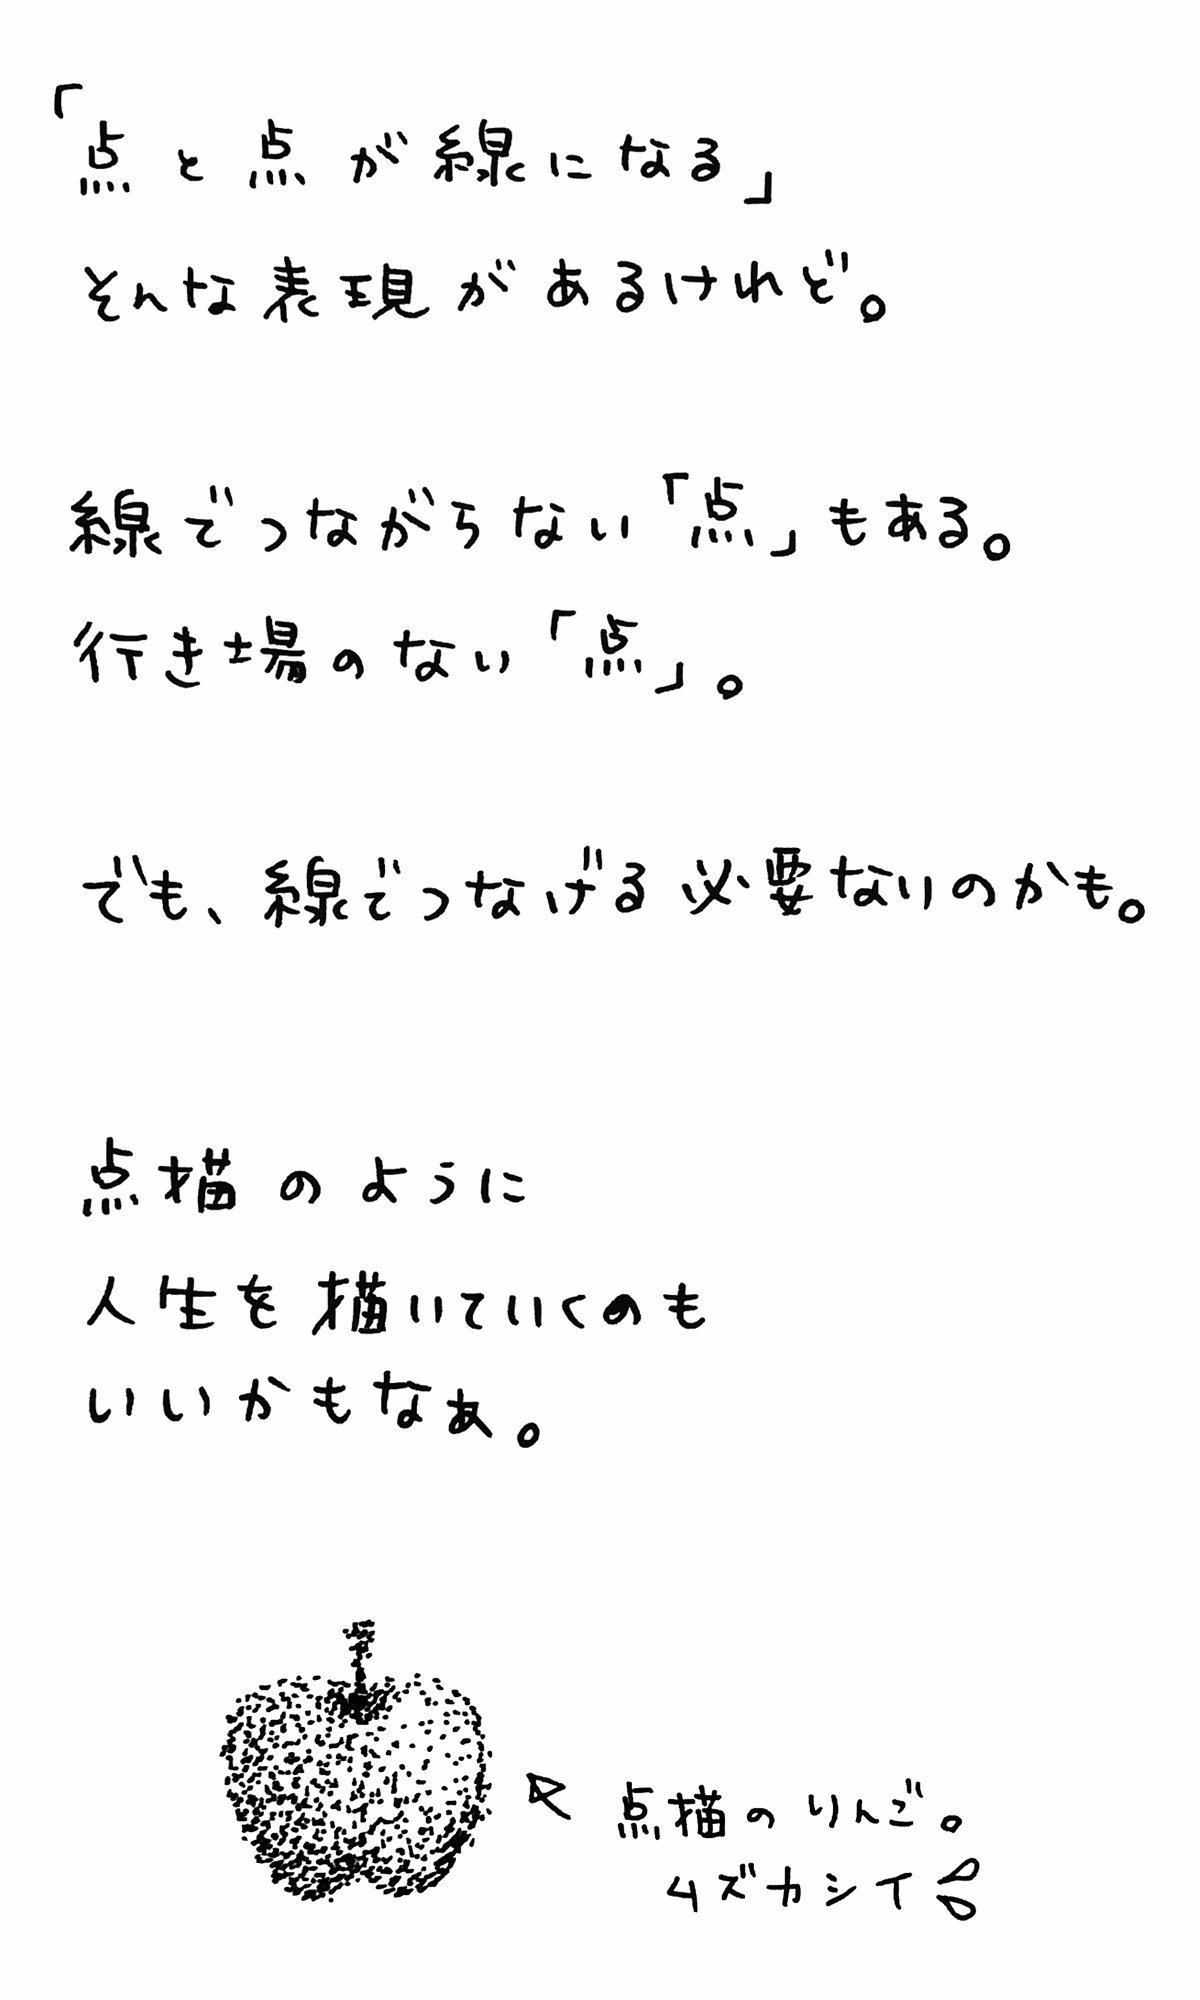 「点と点が線になる」
そんな表現があるけれど。
線でつながらない「点」もある。
行き場のない「点」。
でも、線でつなげる必要ないのかも。
点描のように
人生を描いていくのも
いいかもなぁ。
点描のりんご。
ムズカシイ